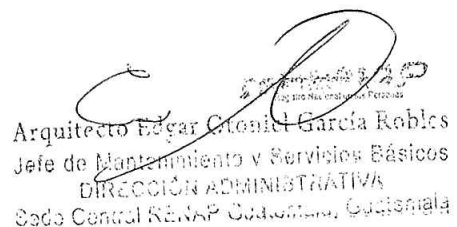 Registro Nacional de las Personas
Arquitecto Edgar Otoniel García Robles
Jefe de Mantenimiento y Servicios Básicos
DIRECCIÓN ADMINISTRATIVA
Sede Central RENAP Guatemala, Guatemala